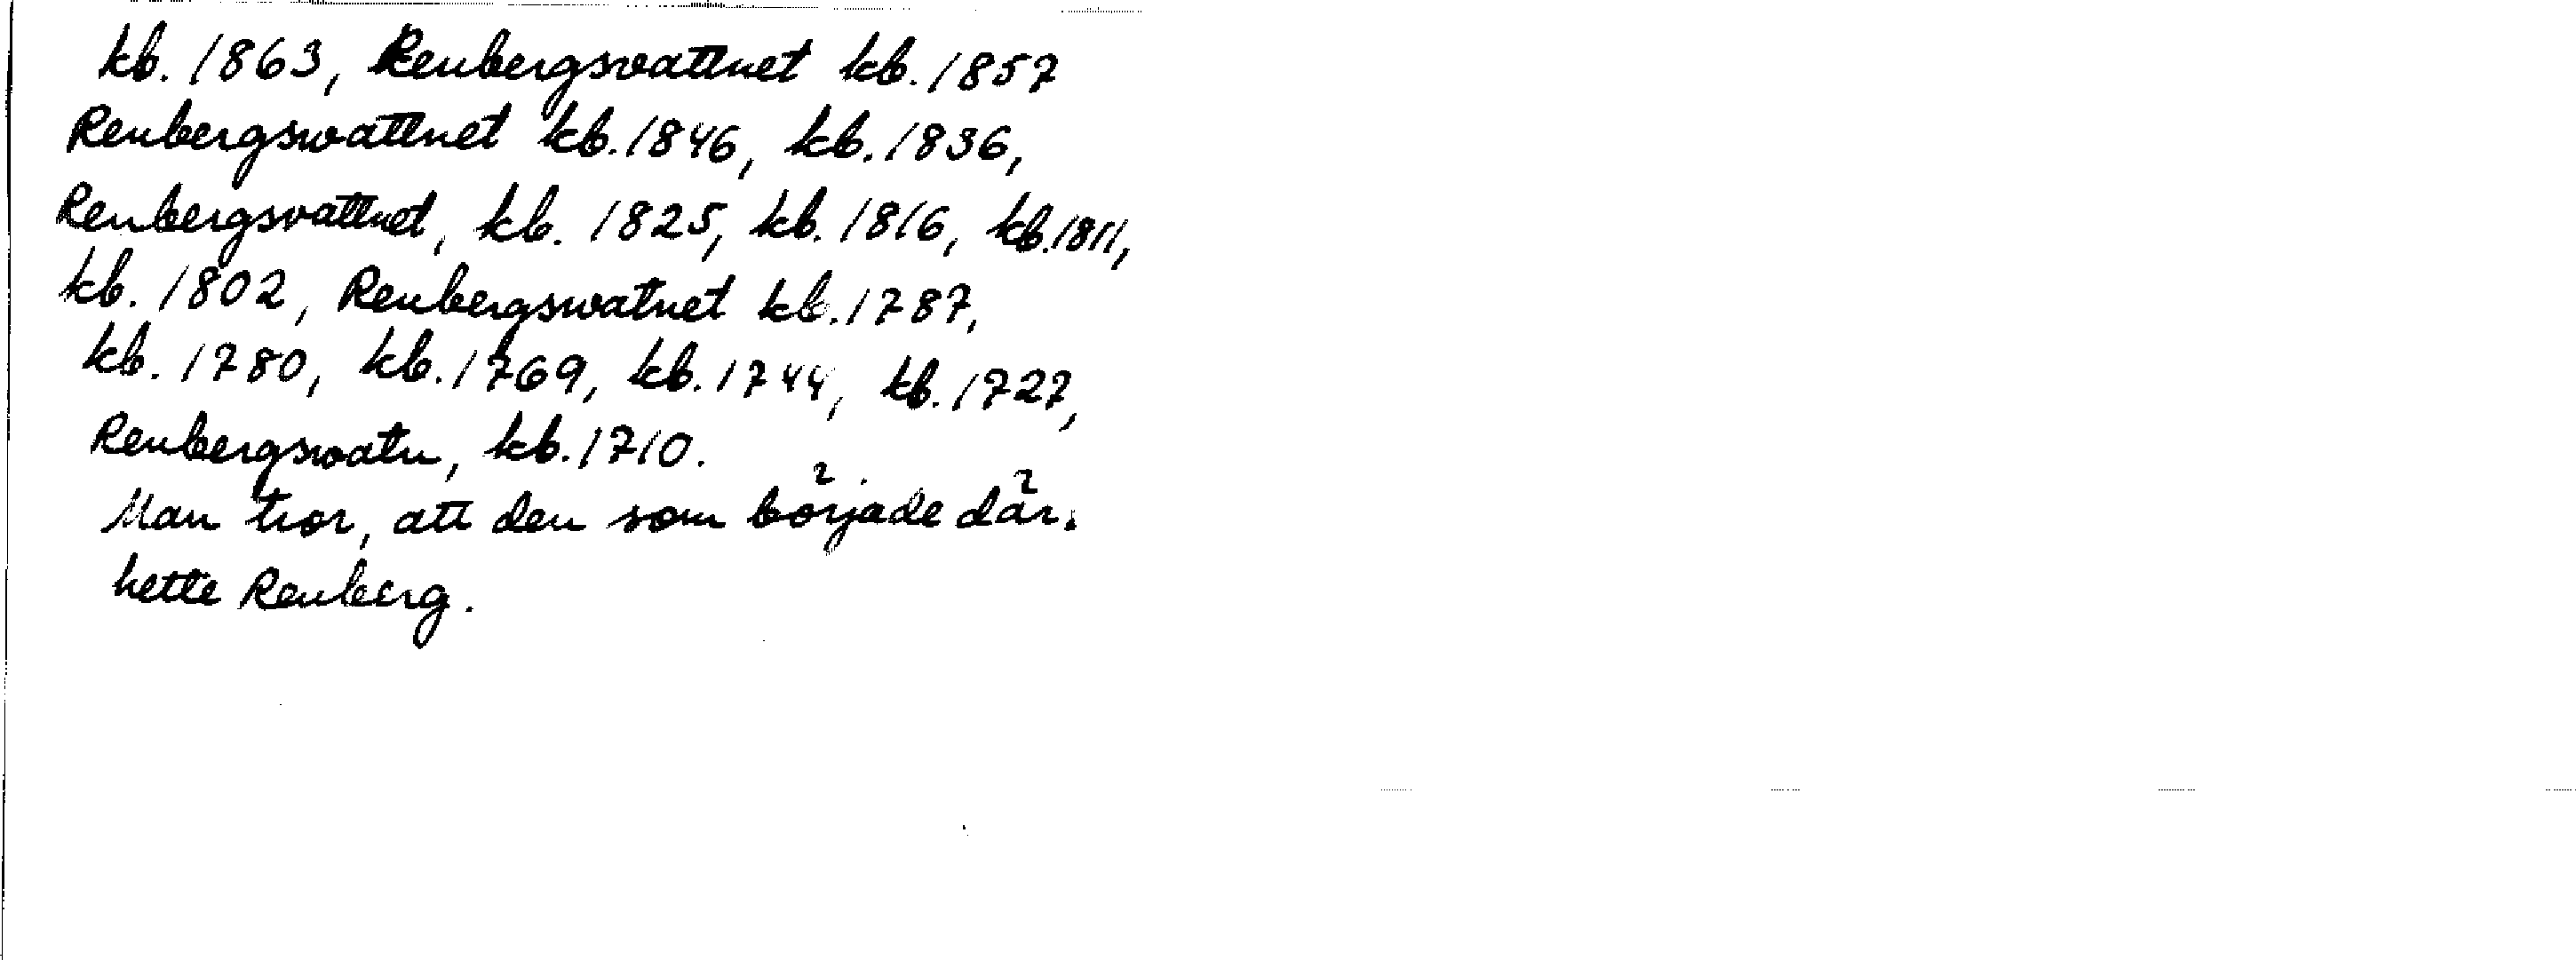 kb. 1863, Renbergsvattnet kb. 1857
Renbergswattnet kb. 1846, kb. 1836,
Renbergsvattnet, kb. 1825, kb. 1816, kb. 1811,
kb. 1802, Renbergswatnet kb. 1787,
kb. 1780, kb. 1769, kb. 1744, kb. 1727,
Renbergswatn, kb. 1710.
Man tror, att den som började där.
hette Renberg.